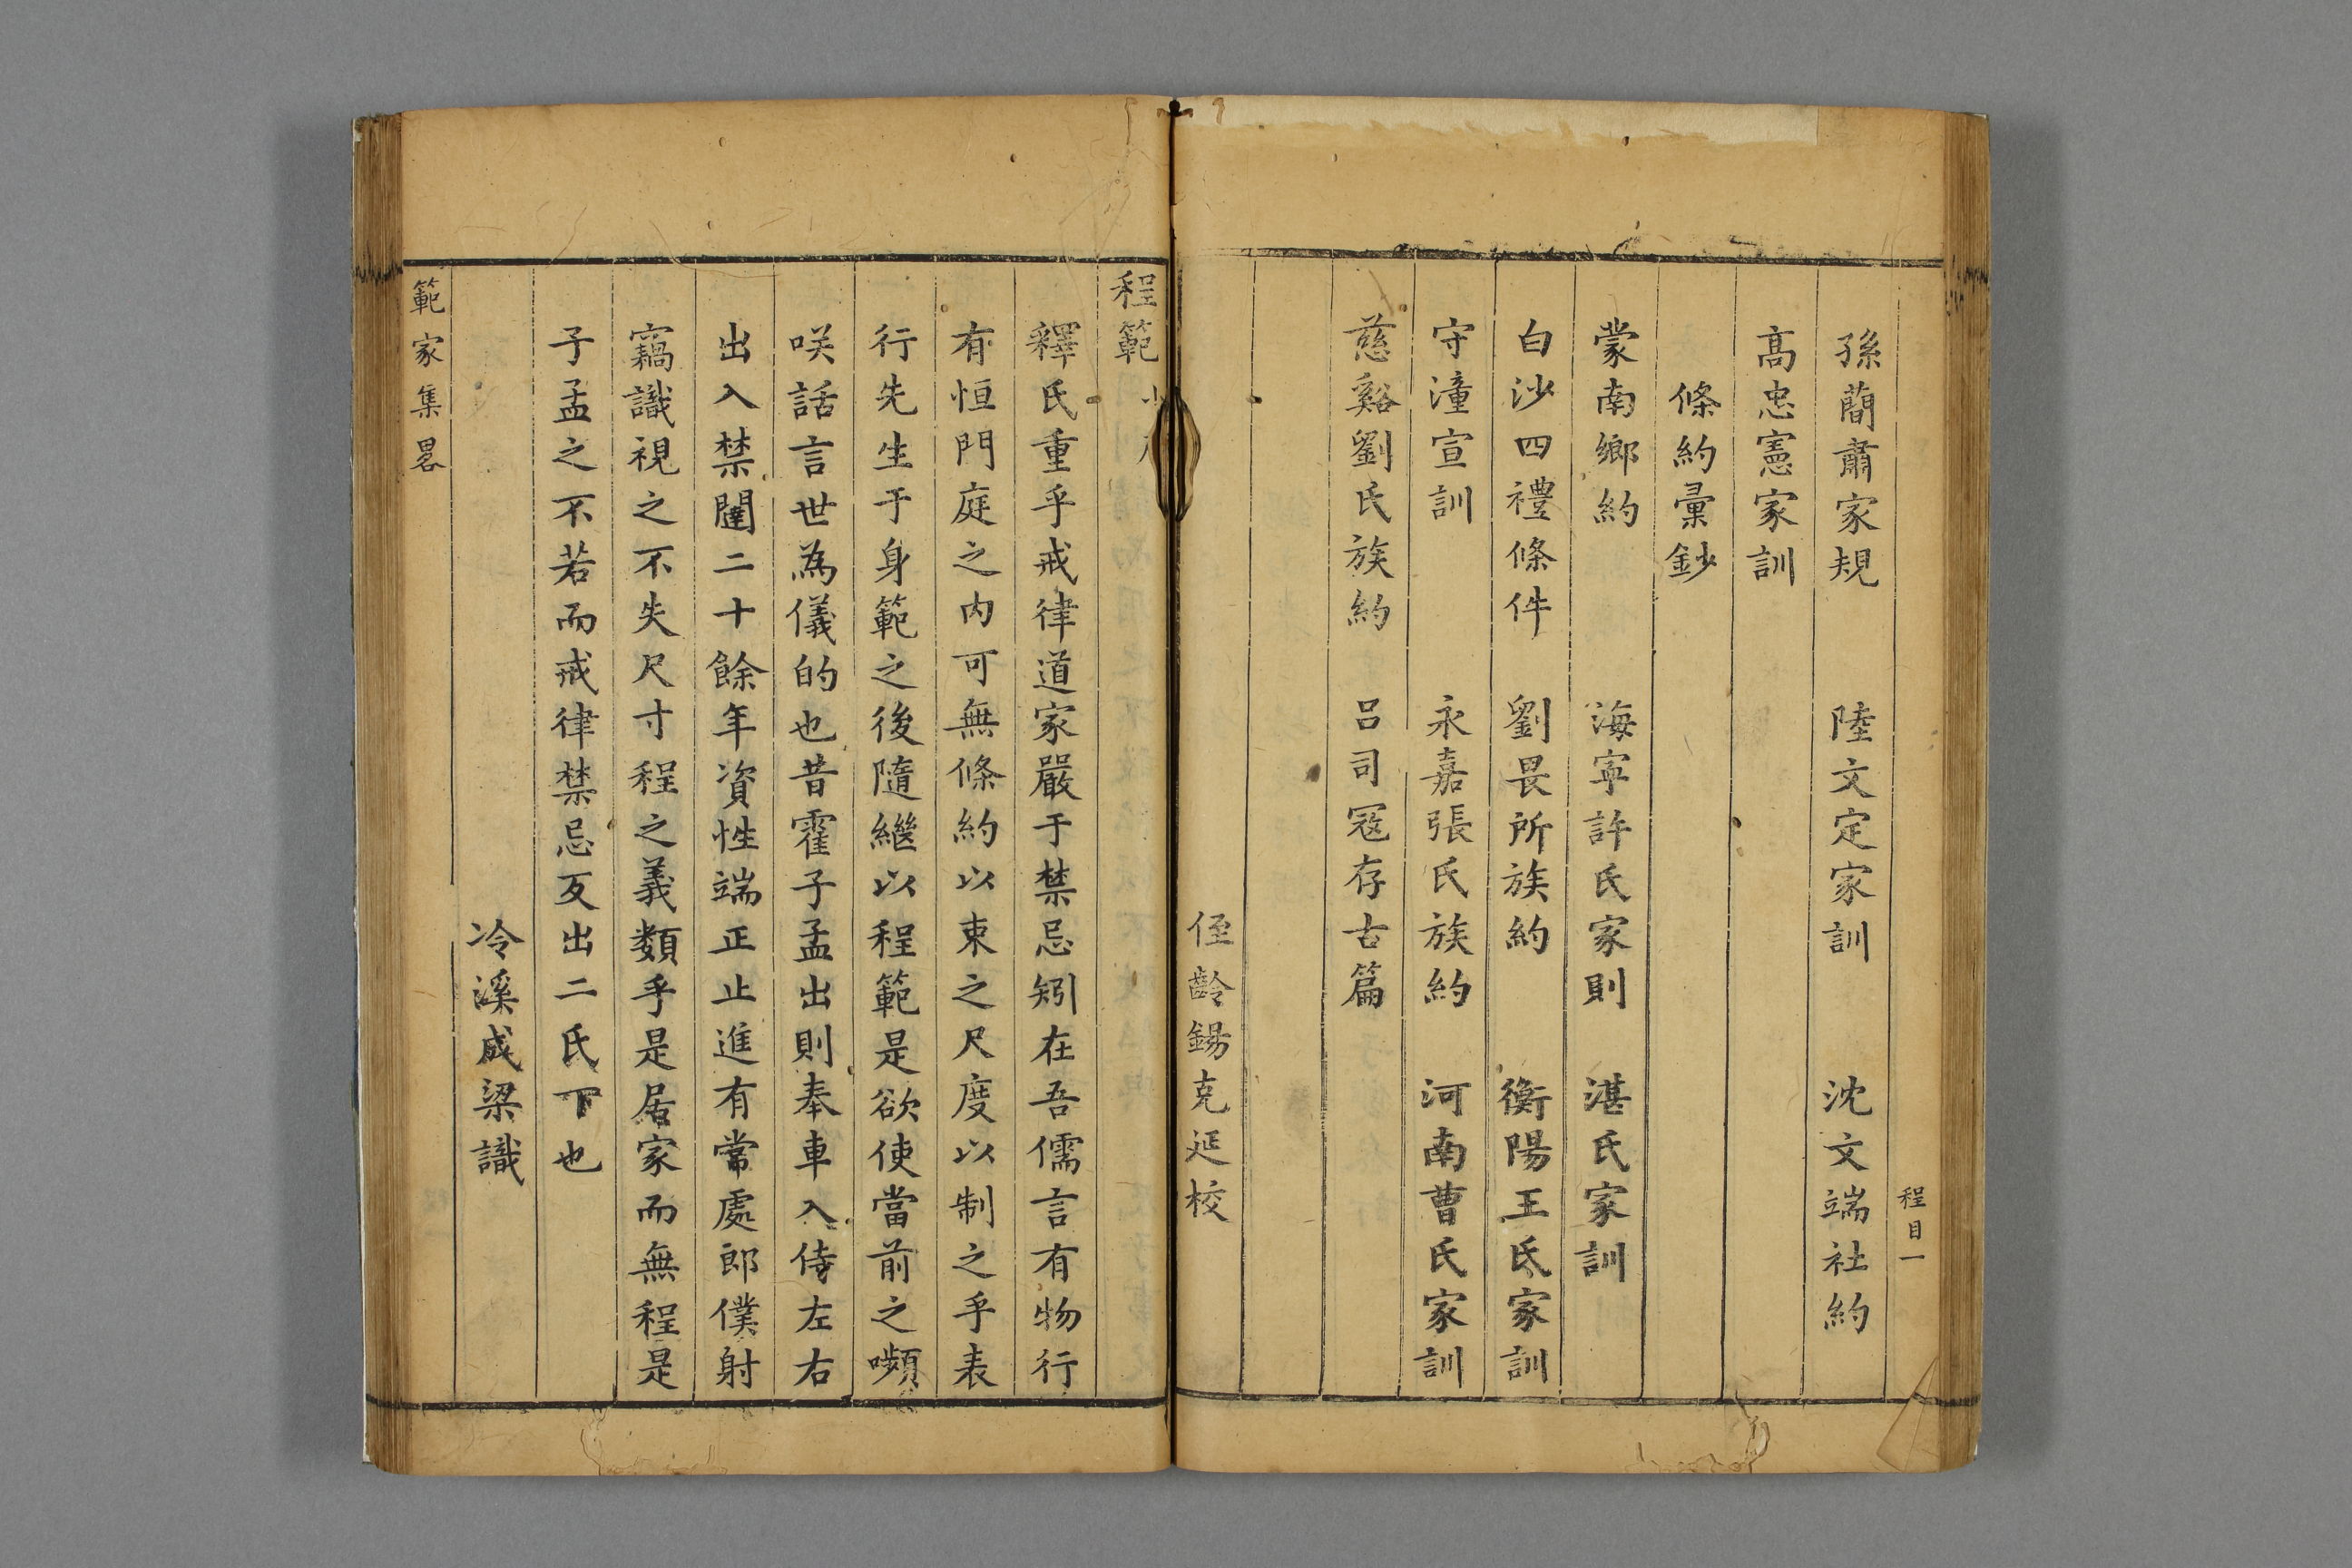 程目一
孫蕳肅家規 陸文定家訓 沈文端社約
高忠憲家訓
條約彙鈔
蒙南鄉約 海寜許氏家則 湛氏家訓
白沙四禮條件 劉畏所族約 衡陽王氏家訓
守潼宣訓 永嘉張氏族約 河南曹氏家訓
慈谿劉氏族約 呂司冦存古篇
侄齡錫克延校
程範
釋氏重乎戒律道家嚴于禁忌矧在吾儒言有物行
有恒門庭之内可無條約以束之尺度以制之乎表
行先生于身範之後隨繼以程範是欲使當前之嚬
咲話言世為儀的也昔霍子孟出則奉車入侍左右
出入禁闥二十餘年資性端正止進有常處郎僕射
竊識視之不失尺寸程之義類乎是居家而無程是
子孟之不若而戒律禁忌反出二氏下也
冷溪成梁識
範家集畧